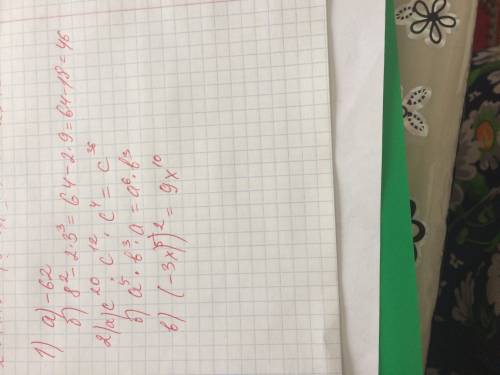 1) а) -62
б) 8² - 2·3³ = 64 - 2·9 = 64 - 18 = 46
2) а) c²⁰ · c¹² · c⁴ = c³⁶
б) a⁵ · b³ · a = a⁶ · b³
в) (-3x⁵)² = 9x¹⁰